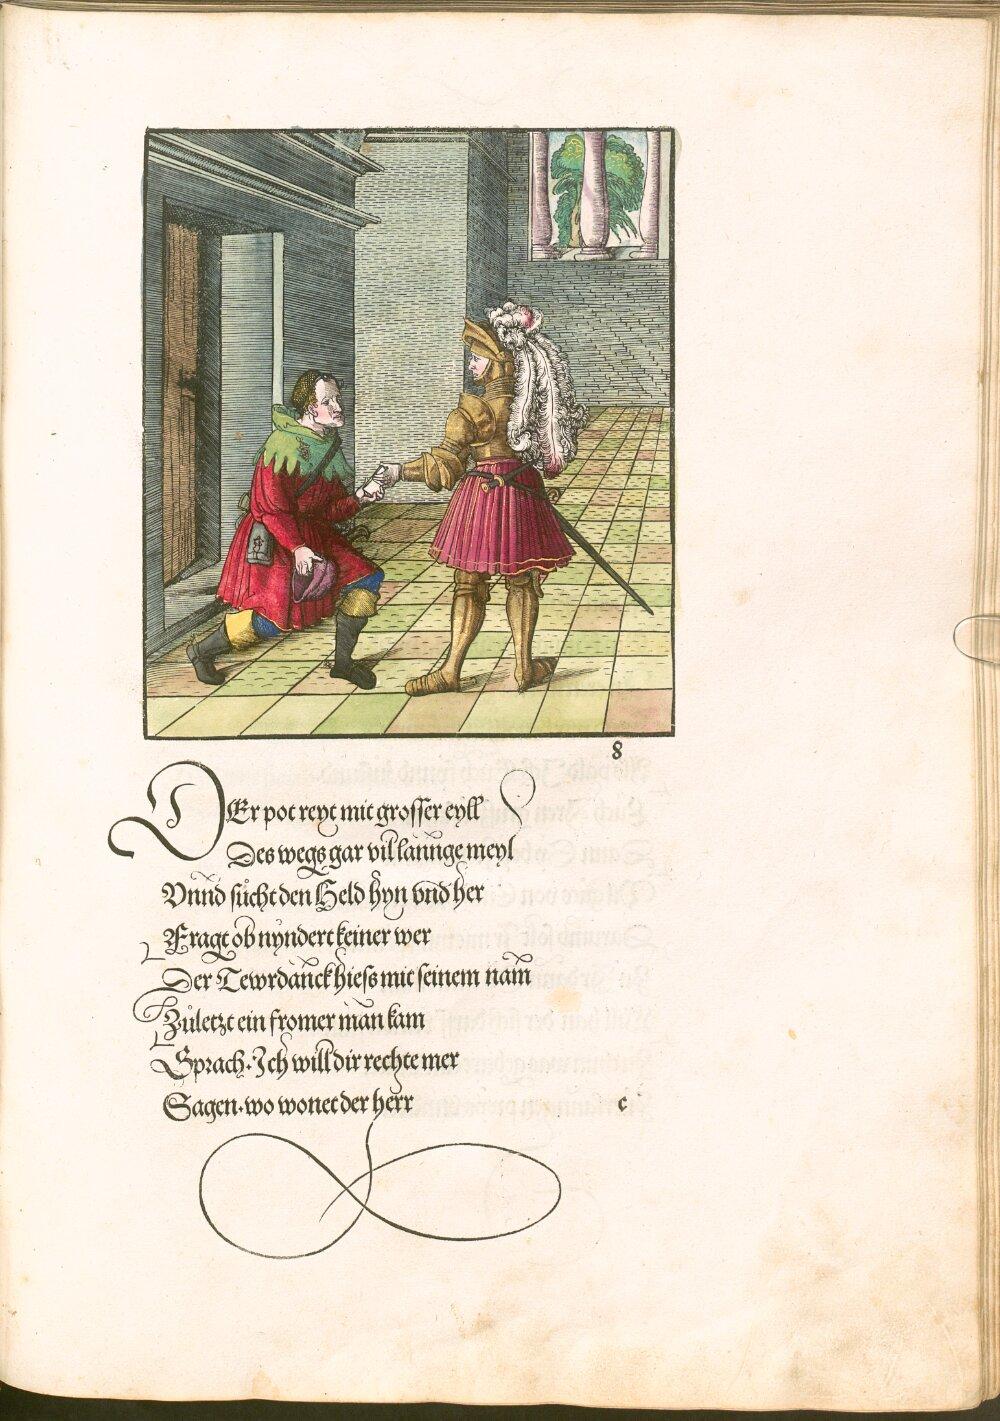 8
DEr pot reyt mit grosser eyll
Des wegs gar vil lannge meyl
Vnnd sůcht den Held hyn vnd her
Fragt ob nyndert keiner wer
Der Tewrdannck hiess mit seinem nam
Zůletzt ein fromer man kam
Sprach. Ich will dir rechte mer
Sagen. wo wonet der herr
c